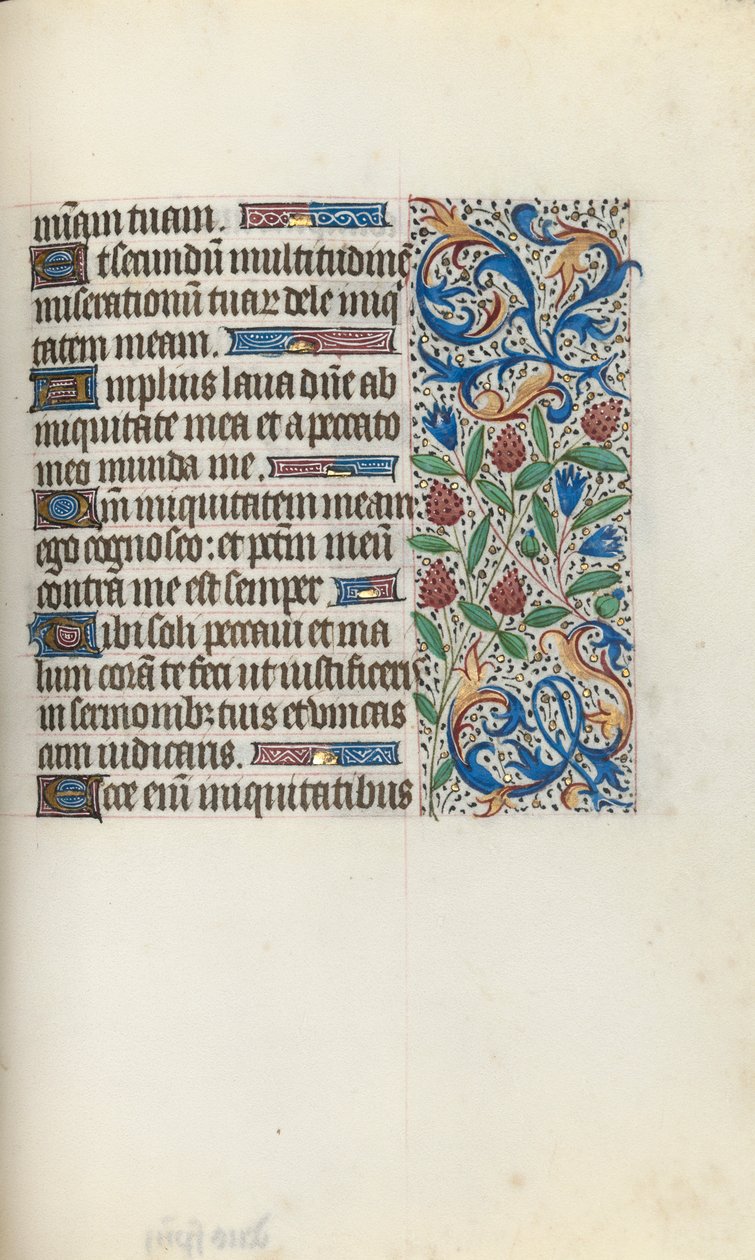 mīam tuam.
Et secundū multitudinē
miserationū tuaꝝ dele iniq
tatem meam.
Amplius laua dn̄e ab
iniquitate mea et a peccato
meo munda me.
Qm̄ iniquitatem meam
ego cognosco: et pctm̄ meū
contra me est semper
Tibi soli peccaui et ma
lum corā te feci ut iustificeris
in sermonibꝫ tuis et vincas
cum iudicaris.
Ecce eni᷒ iniquitatibus